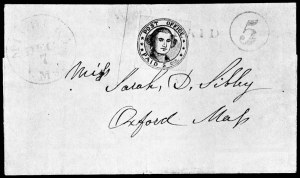 DEC
7
POST OFFICE
PAID
5
Miss Sarah, D. Sibley
Oxford Mass